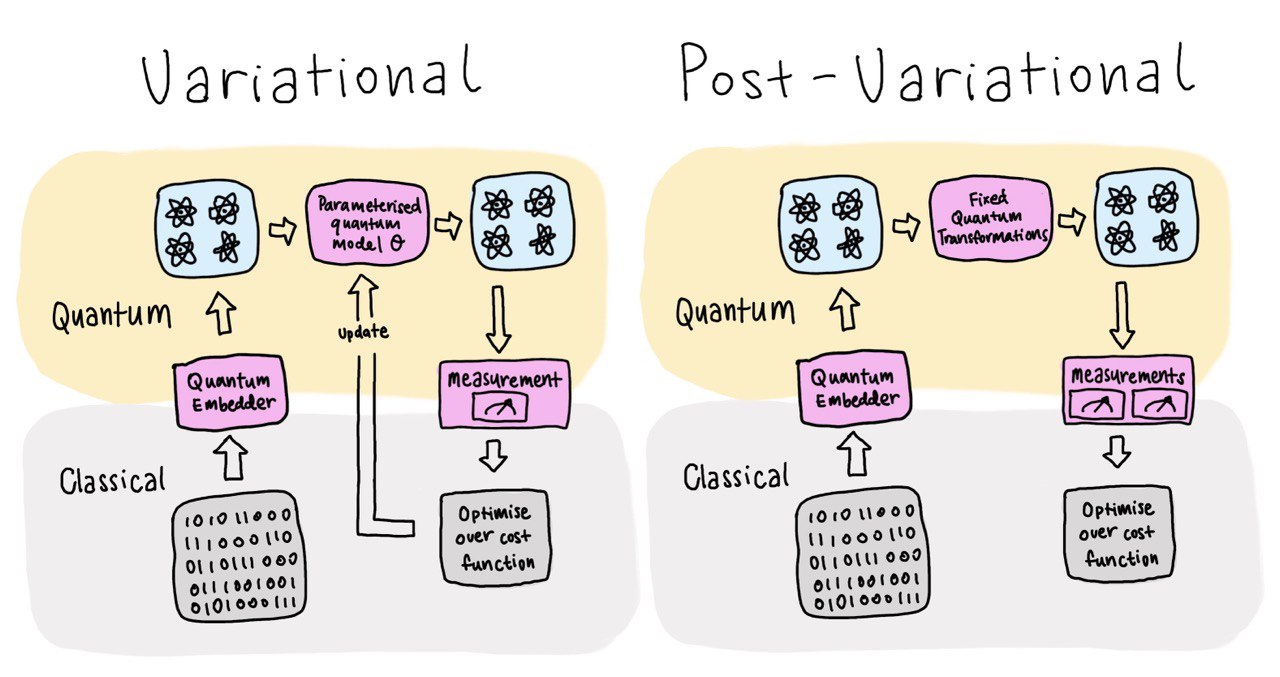 Variational
Parameterised
quantum
model θ
Quantum
update
Quantum
Embedder
measurement
Classical
1010 11000
111000110
0110111 000
0111001001
0101000111
Optimise
over cost
function
Post-Variational
Fixed
Quantum
Transformations
Quantum
Quantum
Embedder
measurements
Classical
1010 11000
111000110
0110111 000
0111001001
0101000111
Optimise
over cost
function